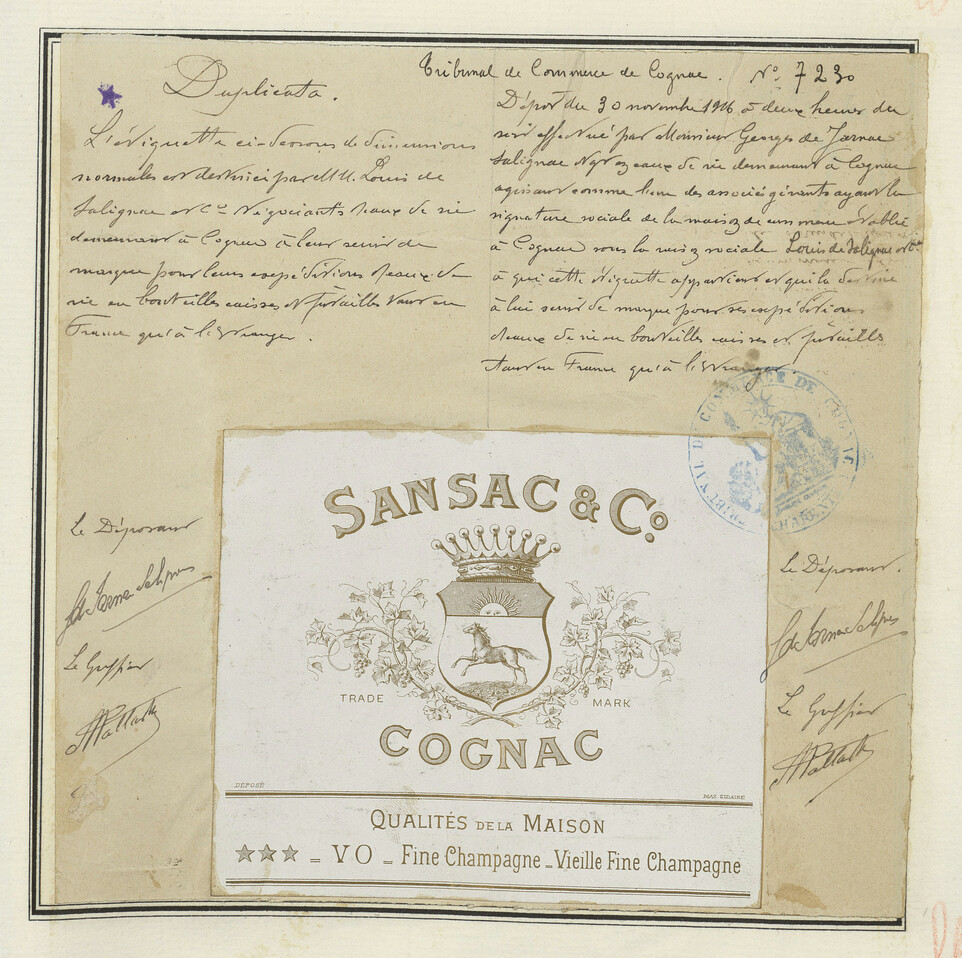 Duplicata.
L'étiquette ci-dessous de dimensions
normales est destinée par M.M. Louis de
Salignac et Co Négociants d'eaux de vie
demeurant à Cognac à leur servir de
marque pour leurs expéditions d'eaux de
vie en bouteilles caisses et futailles tant en
France qu'à l'étranger.
Tribunal de Commerce de Cognac. No 7230
Dépôt du 30 novembre 1916 à deux heures du
soir effectué par Monsieur Georges de Jarnac
Salignac Ngt eaux de vie demeurant à Cognac
agissant comme l'un des associés gérants ayant la
signature sociale de la maison de commerce établie
à Cognac sous la raison sociale Louis de Salignac et Co
à qui cette étiquette appartient et qui la destine
à lui servir de marque pour ses expéditions
d'eaux de vie en bouteilles caisses et futailles
tant en France qu'à l'étranger
TRIBUNAL DE COMMERCE DE COGNAC
CHARENTE
SANSAC & Co.
TRADE MARK
COGNAC
DÉPOSÉ
QUALITÉS DE LA MAISON
★★★ - VO - Fine Champagne - Vieille Fine Champagne
Le Déposant
G de Jarnac Salignac
Le Greffier
Le Déposant.
G de Jarnac Salignac
Le Greffier